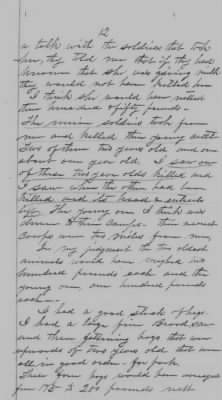 12
a talk with the soldiers that took
her, they told me that if they had
known that she was giving milk
they would not have killed her
I think she would have netted
three hundred & fifty pounds.
The union soldiers took from
me and killed three young cattle
Two of them two years old and one
about one year old, I saw one
of these two year olds killed and
I saw where the other had been
killed and its head & entrails
left. The young one I think was
driven to their camps. Their nearest
camps were two miles from me
In my judgment the two oldest
animals would have weighed two
hundred pounds each and the
young one, one hundred pounds
each.
I had a good stock of hogs.
I had a large fine Brood sow
and three hogs that were
upwards of two years old that were
all in good order for pork.
These four hogs would have averaged
from 175 to 200 pounds nett